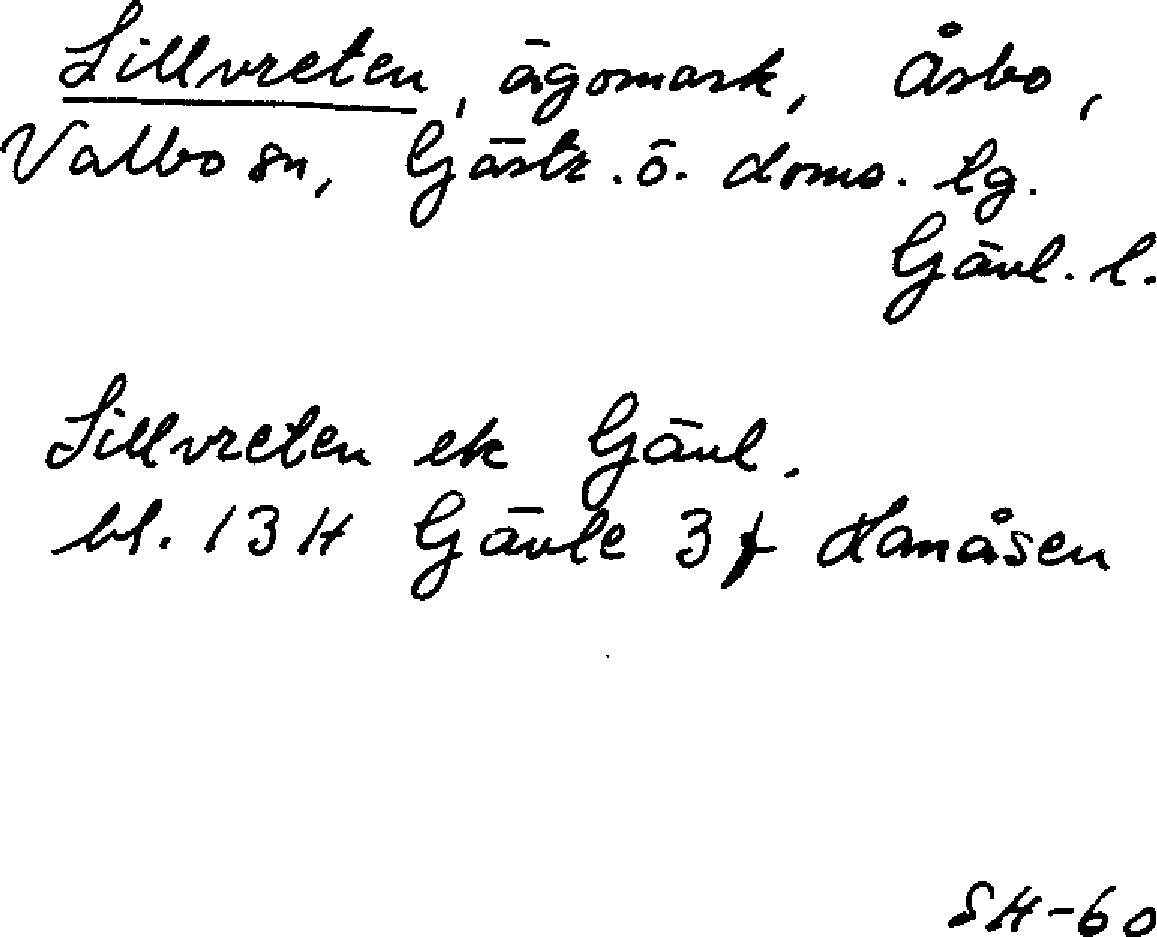 Lillvreten, ägomark, Åsbo,
Valbo sn, Gästr. ö. doms. lg.
Gävl. l.
Lillvreten ek Gävl.
bl. 13 H Gävle 3 f Hamåsen
SH-60